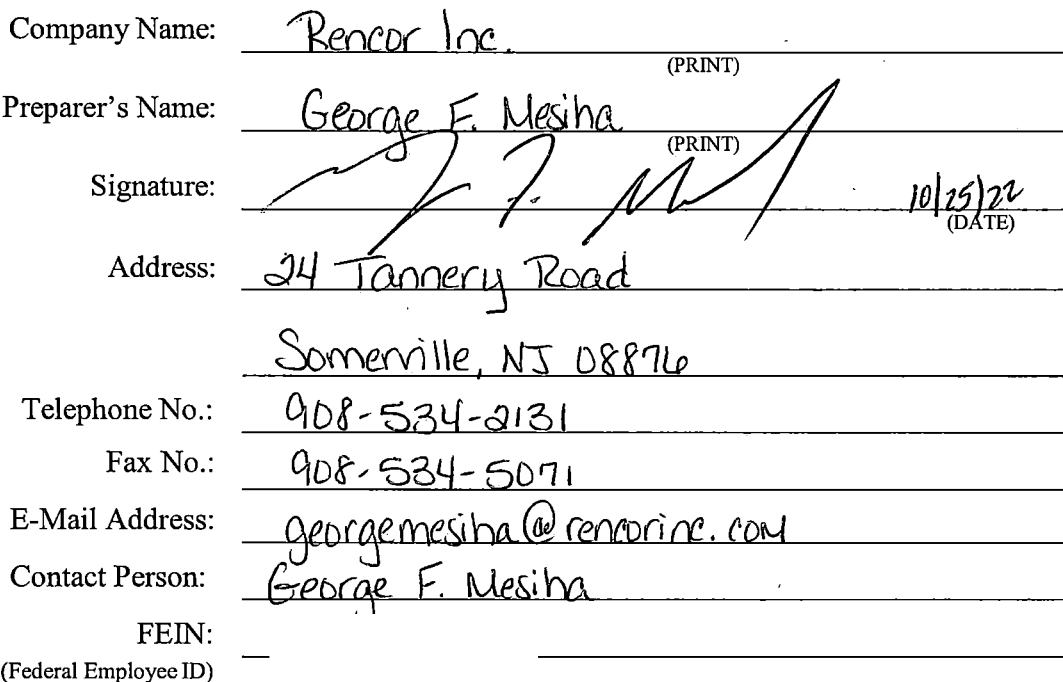 Company Name: Rencor Inc.
(PRINT)
Preparer's Name: George F. Mesiha
(PRINT)
Signature: 10/25/22
(DATE)
Address: 24 Tannery Road
Somerville, NJ 08876
Telephone No.: 908-534-2131
Fax No.: 908-534-5071
E-Mail Address: georgemesiha@rencorinc.com
Contact Person: George F. Mesiha
FEIN:
(Federal Employee ID)